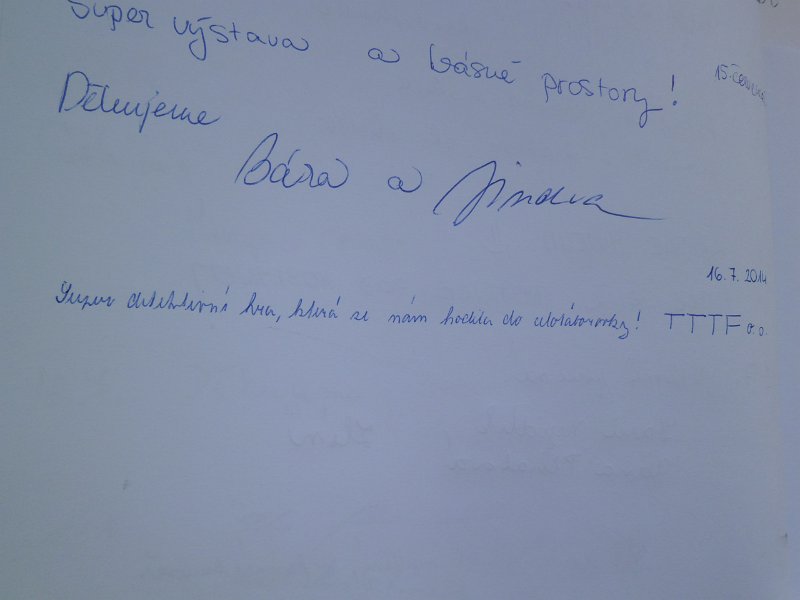 Super výstava a krásné prostory!
15. června
Děkujeme
Bára a Jindra
16.7.2014
Super detektivní hra, která se nám hodila do alotáborovky! TTTF o.o.